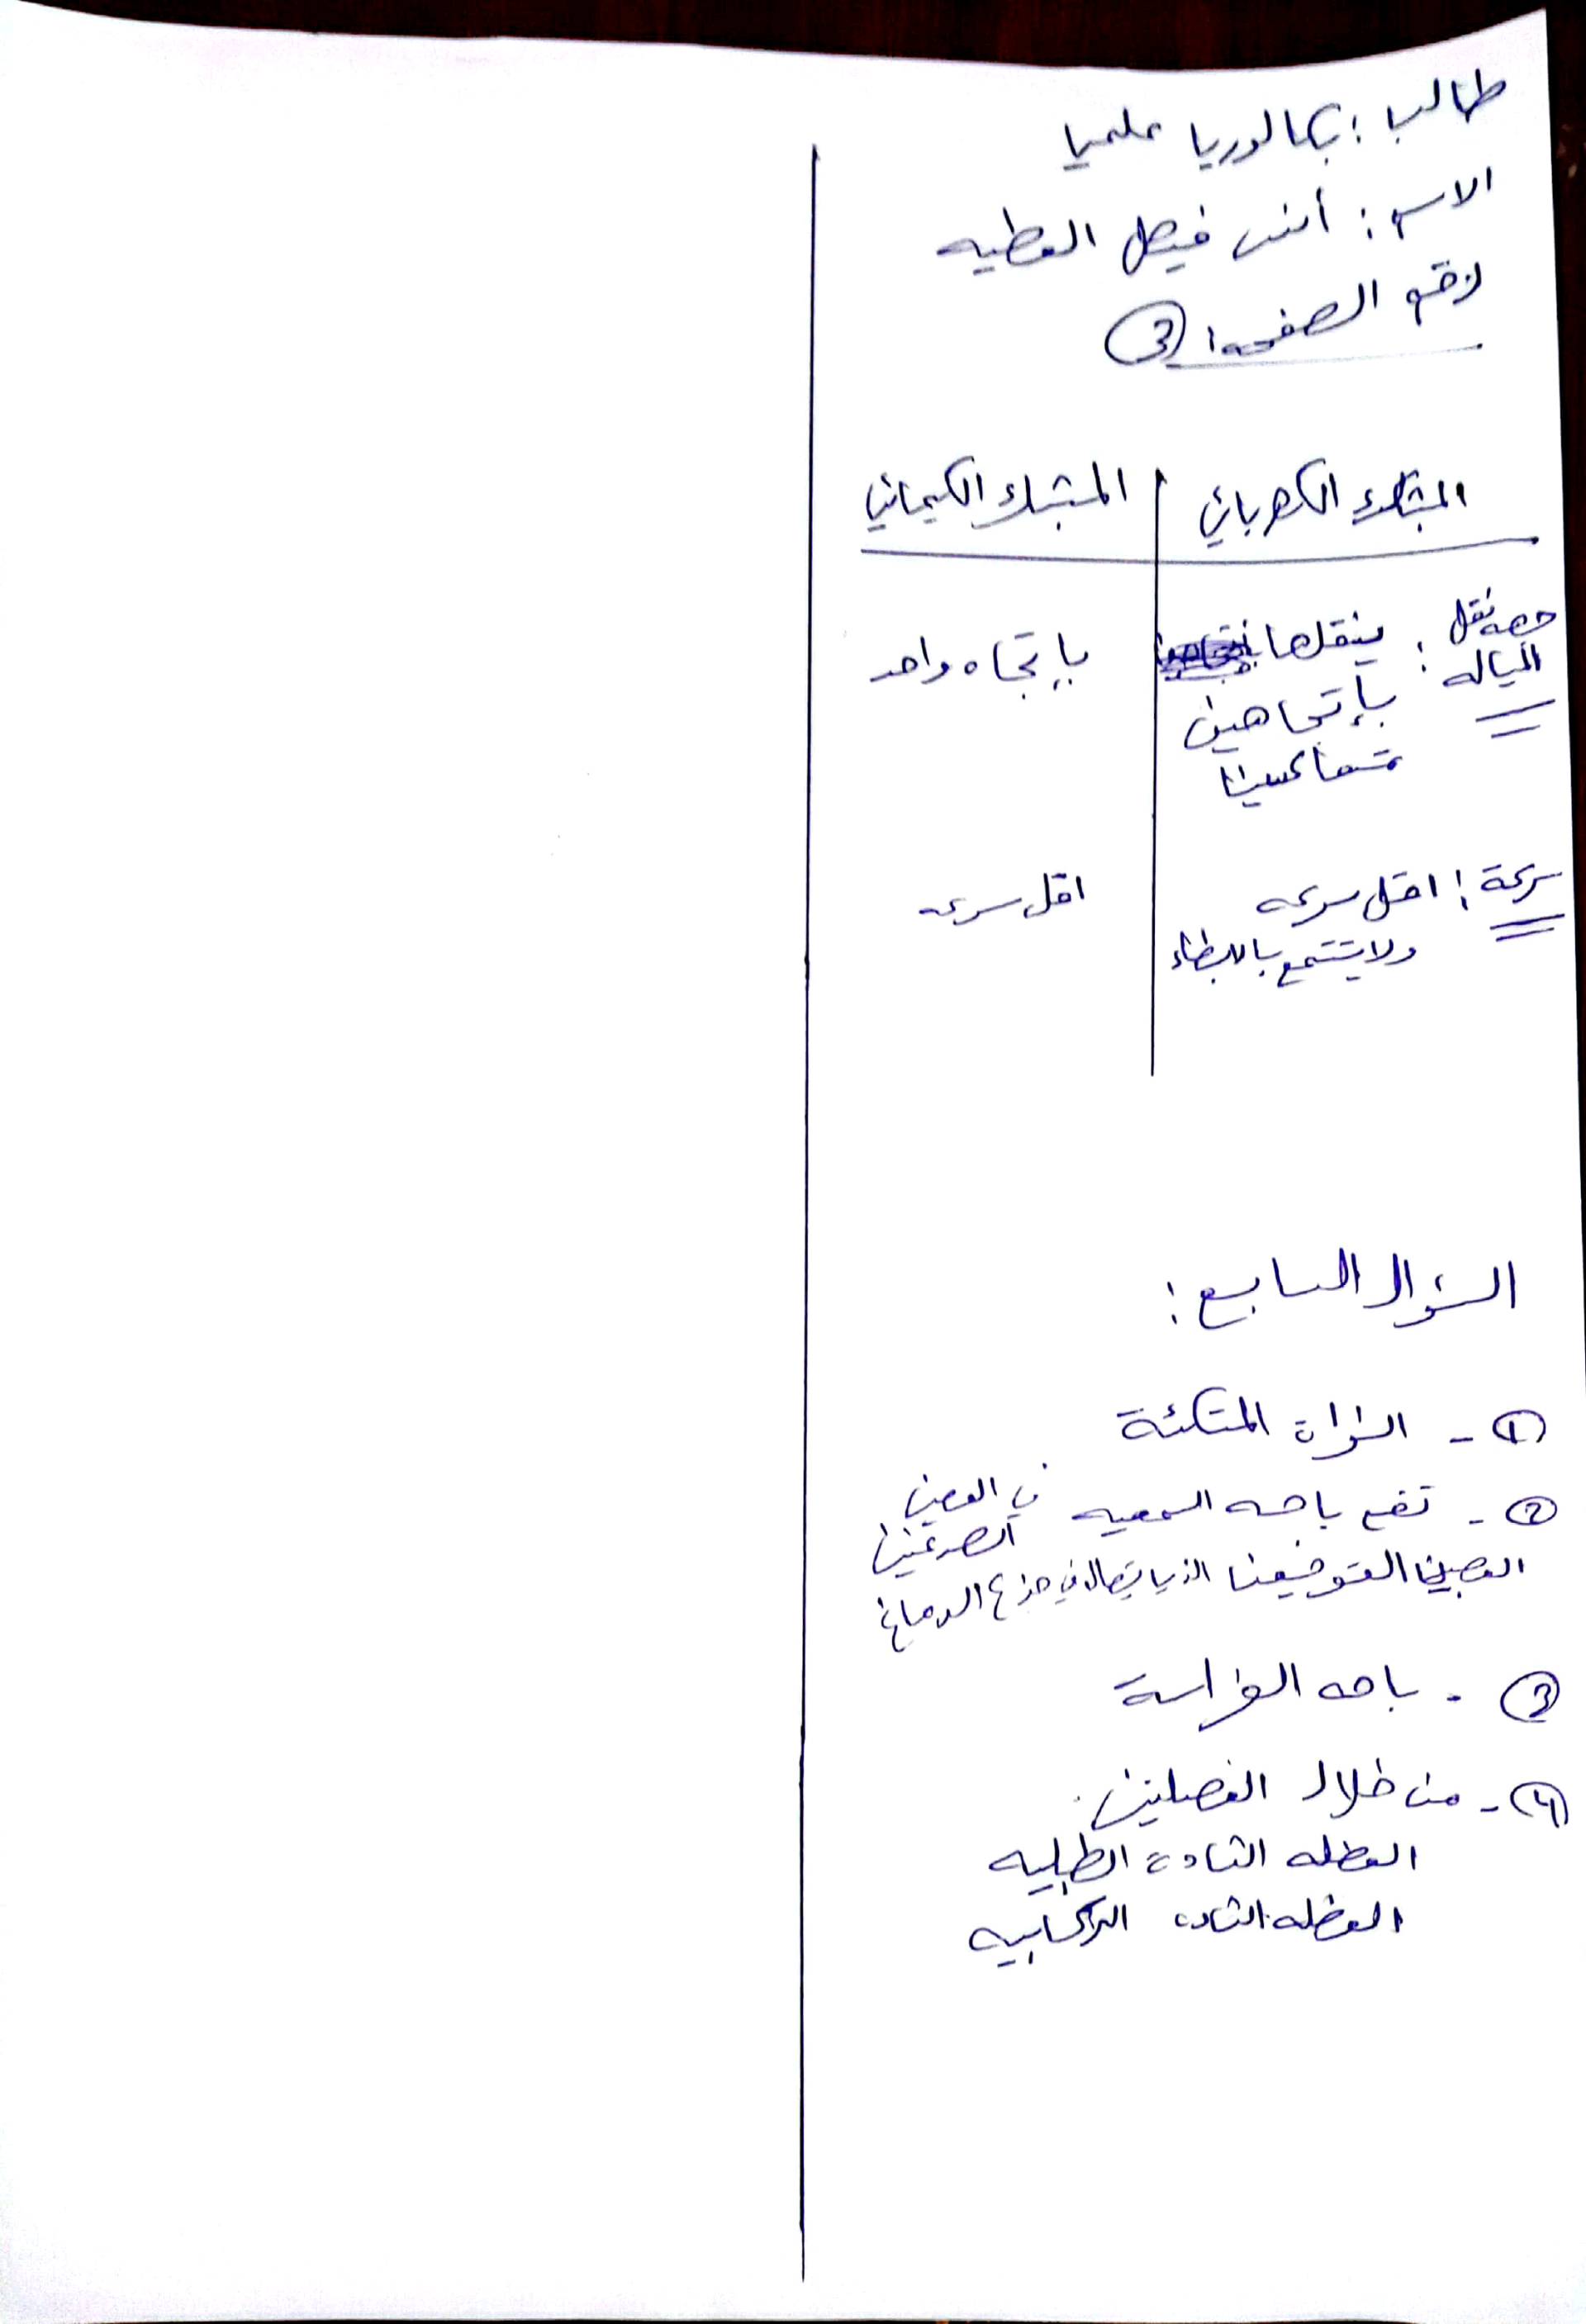 طالب : بكالوريا علمي
الاسم : أنس فيصل العطيه
رقم الصفحه : 3
المشبك الكهربائي | المشبك الكيميائي
جهه نقل السياله : ينقلها بإتجاهين متعاكسين | بإتجاه واحد
سرعة : اقل سرعه ولا يتمتع بالابطاء | اقل سرعه
السؤال السابع :
1 - النواة المتكئة
2 - تقع باحه السمعيه في الفصين الصدغيين
العصبين القوقعيين الذي يتصال في جذع الدماغ
3 - باحه الفراسة
4 - من خلال العضلتين .
العضله الشادة الطبليه
العضله الشاده الركابيه